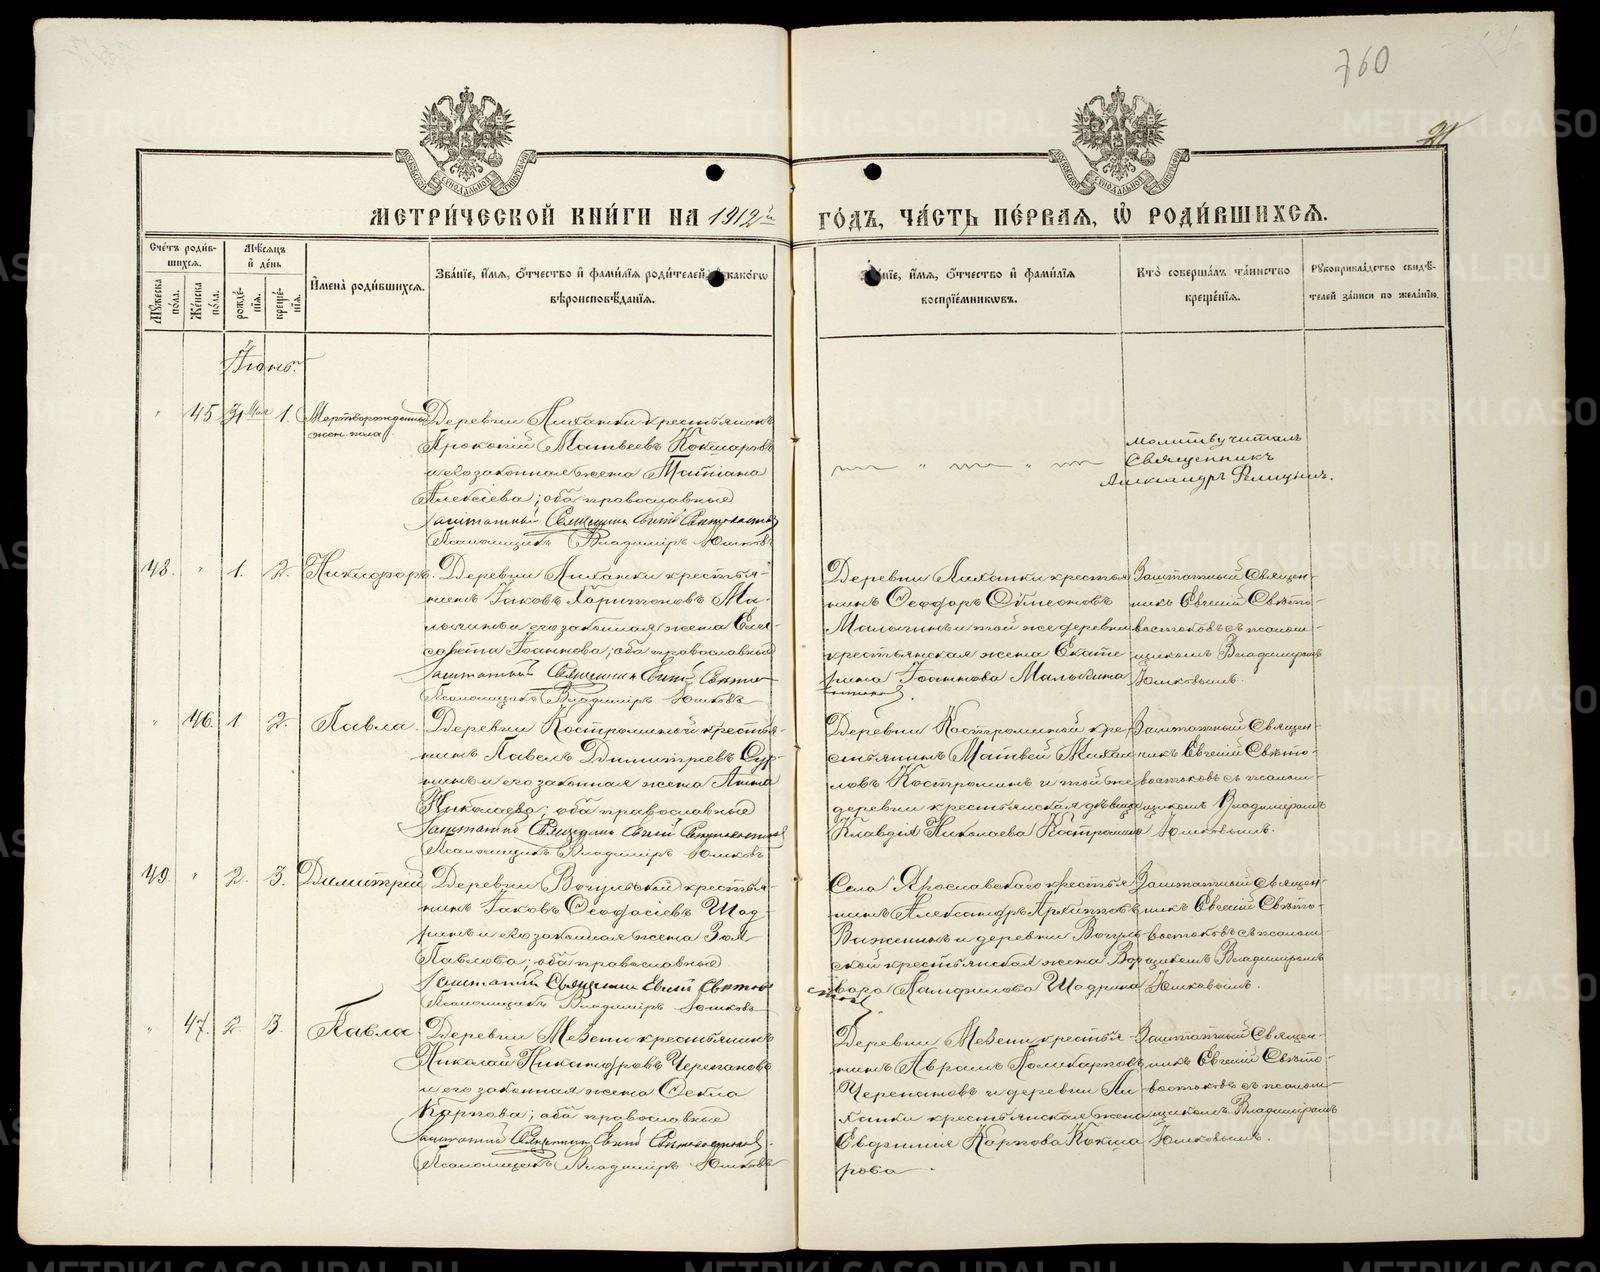 760
21
МЕТРИ́ЧЕСКОЙ КНИ́ГИ НА 1912й ГО́ДЪ, ЧА́СТЬ ПЕ́РВАЯ, Ѡ҆ РОДИ́ВШИХСѦ.
Сче́тъ роди́в-шихсѧ.
Мѣ́сѧцъ и҆ де́нь
Мꙋ́жеска по́ла.
Же́нска по́ла.
рожде́-нїѧ.
креще́-нїѧ.
И҆мена̀ роди́вшихсѧ.
Зва́нїе, и҆́мѧ, ѻ҆́тчество и҆ фами́лїѧ роди́телей, и҆ како́гѡ
вѣроисповѣ́данїѧ.
Зва́нїе, и҆́мѧ, ѻ҆́тчество и҆ фами́лїѧ
воспрїе́мникѡвъ.
Кто̀ соверша́лъ та́инство
креще́нїѧ.
Рꙋкоприкла́дство свидѣ́-
телей за́писи по жела́нїю.
Іюнь.
" 45 31 Мая 1. Мертворожденный
жен. пола.
Деревни Ляханки крестьянинъ
Прокопій Матвеевъ Кокшаровъ
и его законная жена Татіана
Алексіева; оба православные
Заштатный Священникъ Евгеній Свѣтовостоковъ
Псаломщикъ Владиміръ Юшковъ
молитву читалъ
Священникъ
Александръ
48. " 1. 2. Никифоръ.
Деревни Ляханки крестья-
нинъ Іаковъ Харитоновъ Ма-
лыгинъ и его законная жена Ели-
савета Іоаннова; оба православные
Заштатный Священникъ Евгеній Свѣтов
Псаломщикъ Владиміръ Юшковъ
Деревни Ляханки крестья
нинъ Ѳеодоръ Симеоновъ
Малыгинъ и той же деревни
крестьянская жена Екате
рина Іоаннова Малыгина
Заштатный Священ-
никъ Евгеній Свѣто-
востоковъ съ псалом-
щикомъ Владиміромъ
Юшковымъ.
" 46. 1 2. Павла.
Деревни Костроминой крестья-
нинъ Павелъ Димитріевъ Сур-
нинъ и его законная жена Анна
Николаева; оба православные
Заштатный Священникъ Евгеній Свѣтовостоковъ
Псаломщикъ Владиміръ Юшковъ
Деревни Костроминой кре-
стьянинъ Матвей Михаи
ловъ Костроминъ и той же
деревни крестьянская дѣвица
Клавдія Николаева Костромина
Заштатный Священ-
никъ Евгеній Свѣто-
востоковъ съ псалом-
щикомъ Владиміромъ
Юшковымъ.
49. " 2. 3. Димитрій
Деревни Вогульской крестья-
нинъ Іаковъ Ѳеодосіевъ Шад-
ринъ и его законная жена Зоя
Павлова; оба православные
Заштатный Священникъ Евгеній Свѣтов
Псаломщикъ Владиміръ Юшковъ
Села Ярославскаго крестья
нинъ Александръ Архипповъ
Важенинъ и деревни Вогуль-
ской крестьянская жена Вар
вара Памфилова Шадрина
Заштатный Священ-
никъ Евгеній Свѣто-
востоковъ съ псалом-
щикомъ Владиміромъ
Юшковымъ.
" 47. 2. 3. Павла
Деревни Мезени крестьянинъ
Николай Никаноровъ Черепановъ
и его законная жена Ѳекла
Карпова; оба православные
Заштатный Священникъ Евгеній Свѣтовостоковъ
Псаломщикъ Владиміръ Юшковъ
Деревни Мезени крестья-
нинъ Авраамъ Поликарповъ
Черепановъ и деревни Ля
ханки крестьянская жена
Евдокия Карпова Кокша
рова.
Заштатный Священ-
никъ Евгеній Свѣто-
востоковъ съ псалом-
щикомъ Владиміромъ
Юшковымъ.
METRIKI.GASO-URAL.RU